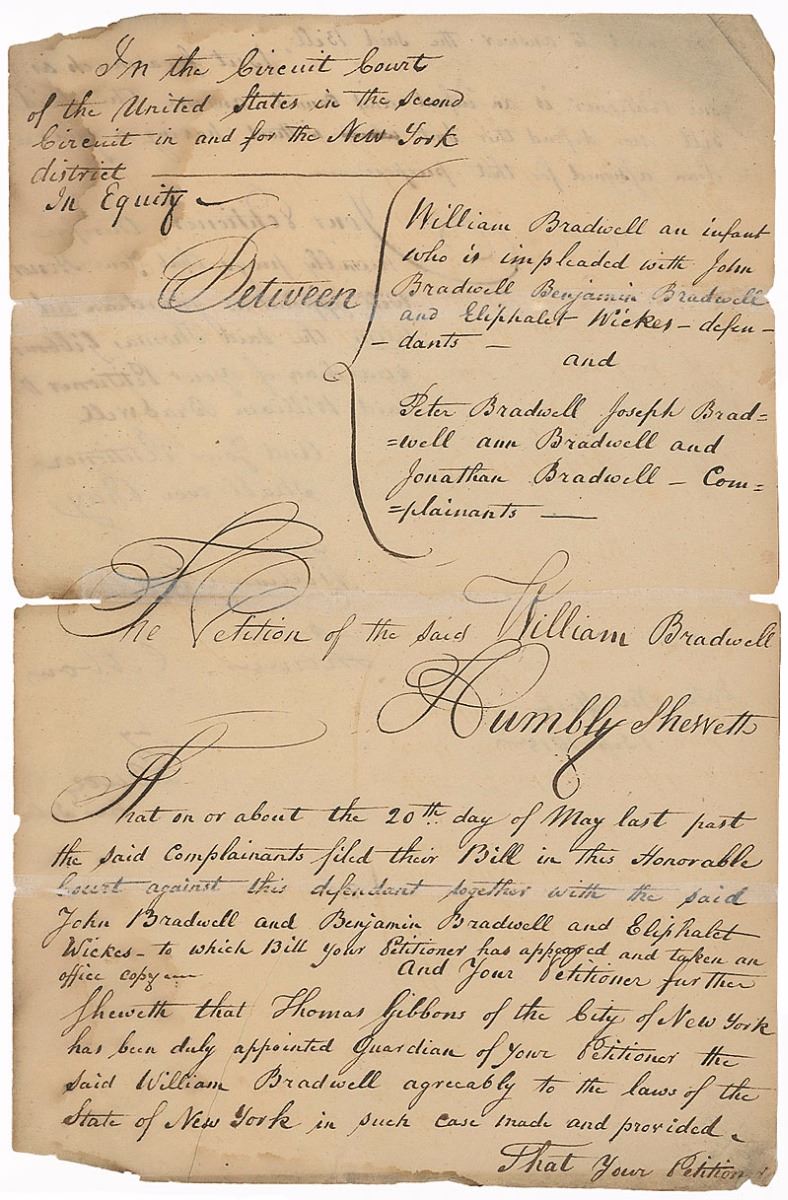 In the Circuit Court
of the United States in the second
Circuit in and for the New York
district
In Equity
Between
William Bradwell an infant
who is impleaded with John
Bradwell Benjamin Bradwell
and Eliphalet Wickes - defen-
- dants -
and
Peter Bradwell Joseph Brad=
=well ann Bradwell and
Jonathan Bradwell - Com=
=plainants -
The Petition of the said William Bradwell
Humbly Sheweth
That on or about the 20th day of May last past
the said Complainants filed their Bill in this Honorable
Court against this defendant together with the said
John Bradwell and Benjamin Bradwell and Eliphalet
Wickes - to which Bill Your Petitioner has appeared and taken an
office copy -
And Your Petitioner further
Sheweth that Thomas Gibbons of the City of New York
has been duly appointed Guardian of Your Petitioner the
said William Bradwell agreeably to the laws of the
State of New York in such case made and provided
That Your Petitioner